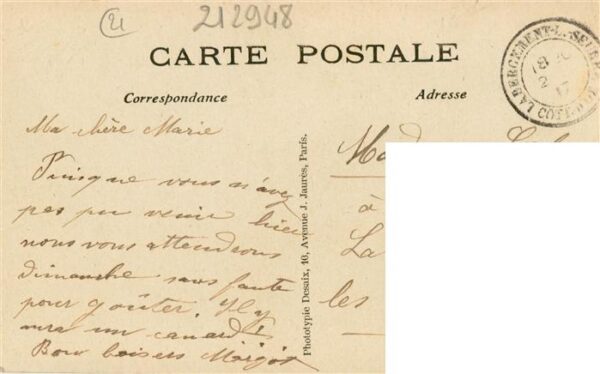 21
212948
CARTE POSTALE
Correspondance
Adresse
LABERGEMENT-L.-SEURRE
18
2
17
COTE-D'OR
Ma chère Marie
Puisque vous n'avez
pas pu venir hier
nous vous attendrons
dimanche sans faute
pour goûter. Il y
aura un canard!
Bons baisers Margot
Phototypie Desaix, 16, Avenue J. Jaurès, Paris.
à
La
les